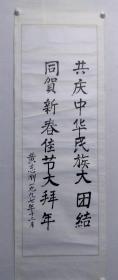 共庆中华民族大团结
同贺新春佳节大拜年
一九九七年十二月